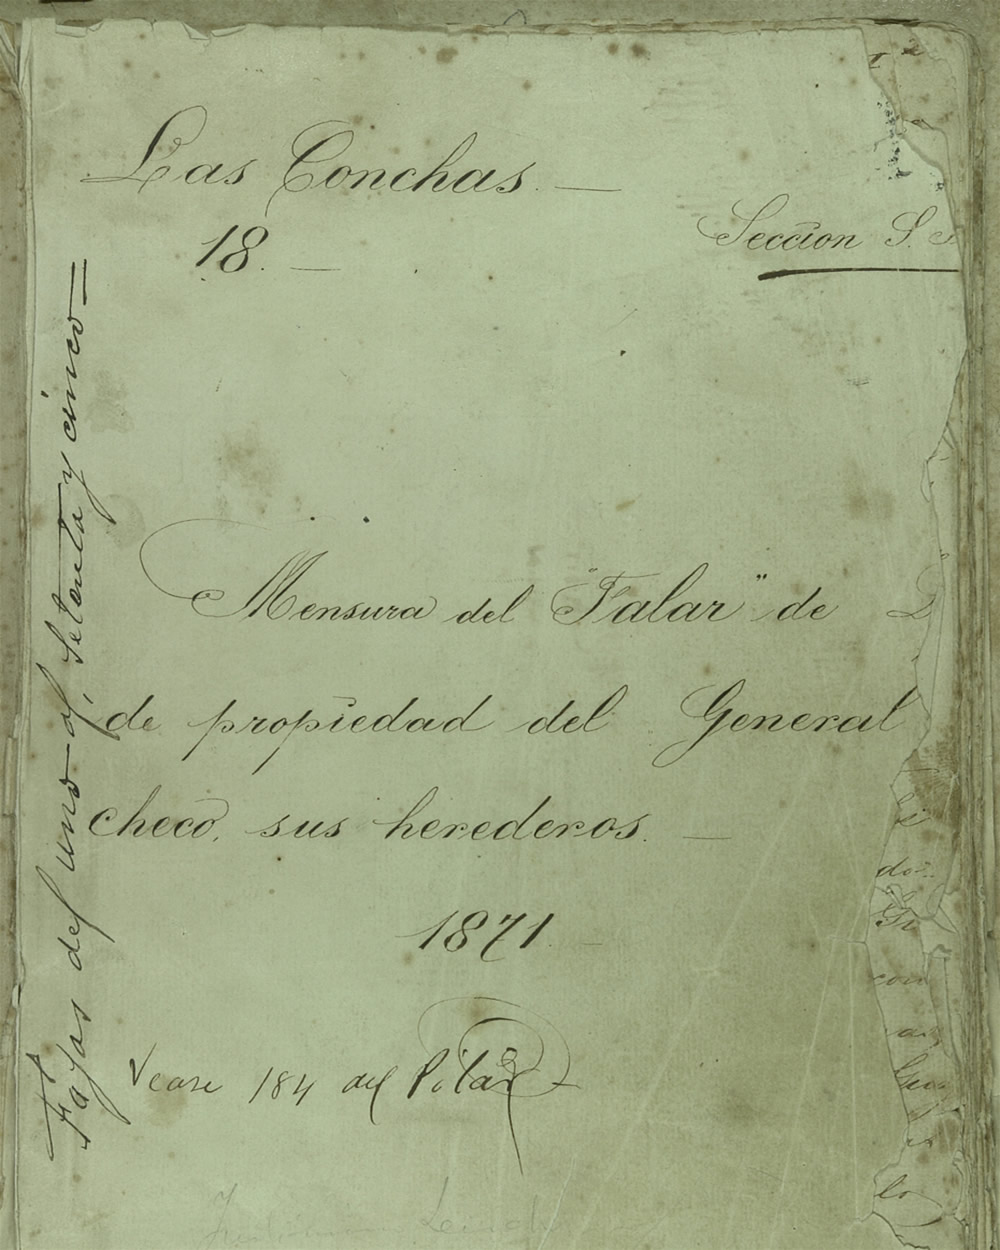 Las Conchas. —
18. —
Seccion S.
Mensura del "Talar" de
de propiedad del General
checo, sus herederos. —
1871
Vease 184 del Pilar
Fojas del uno al, setenta y cinco —
do
Gr
con
a
lo